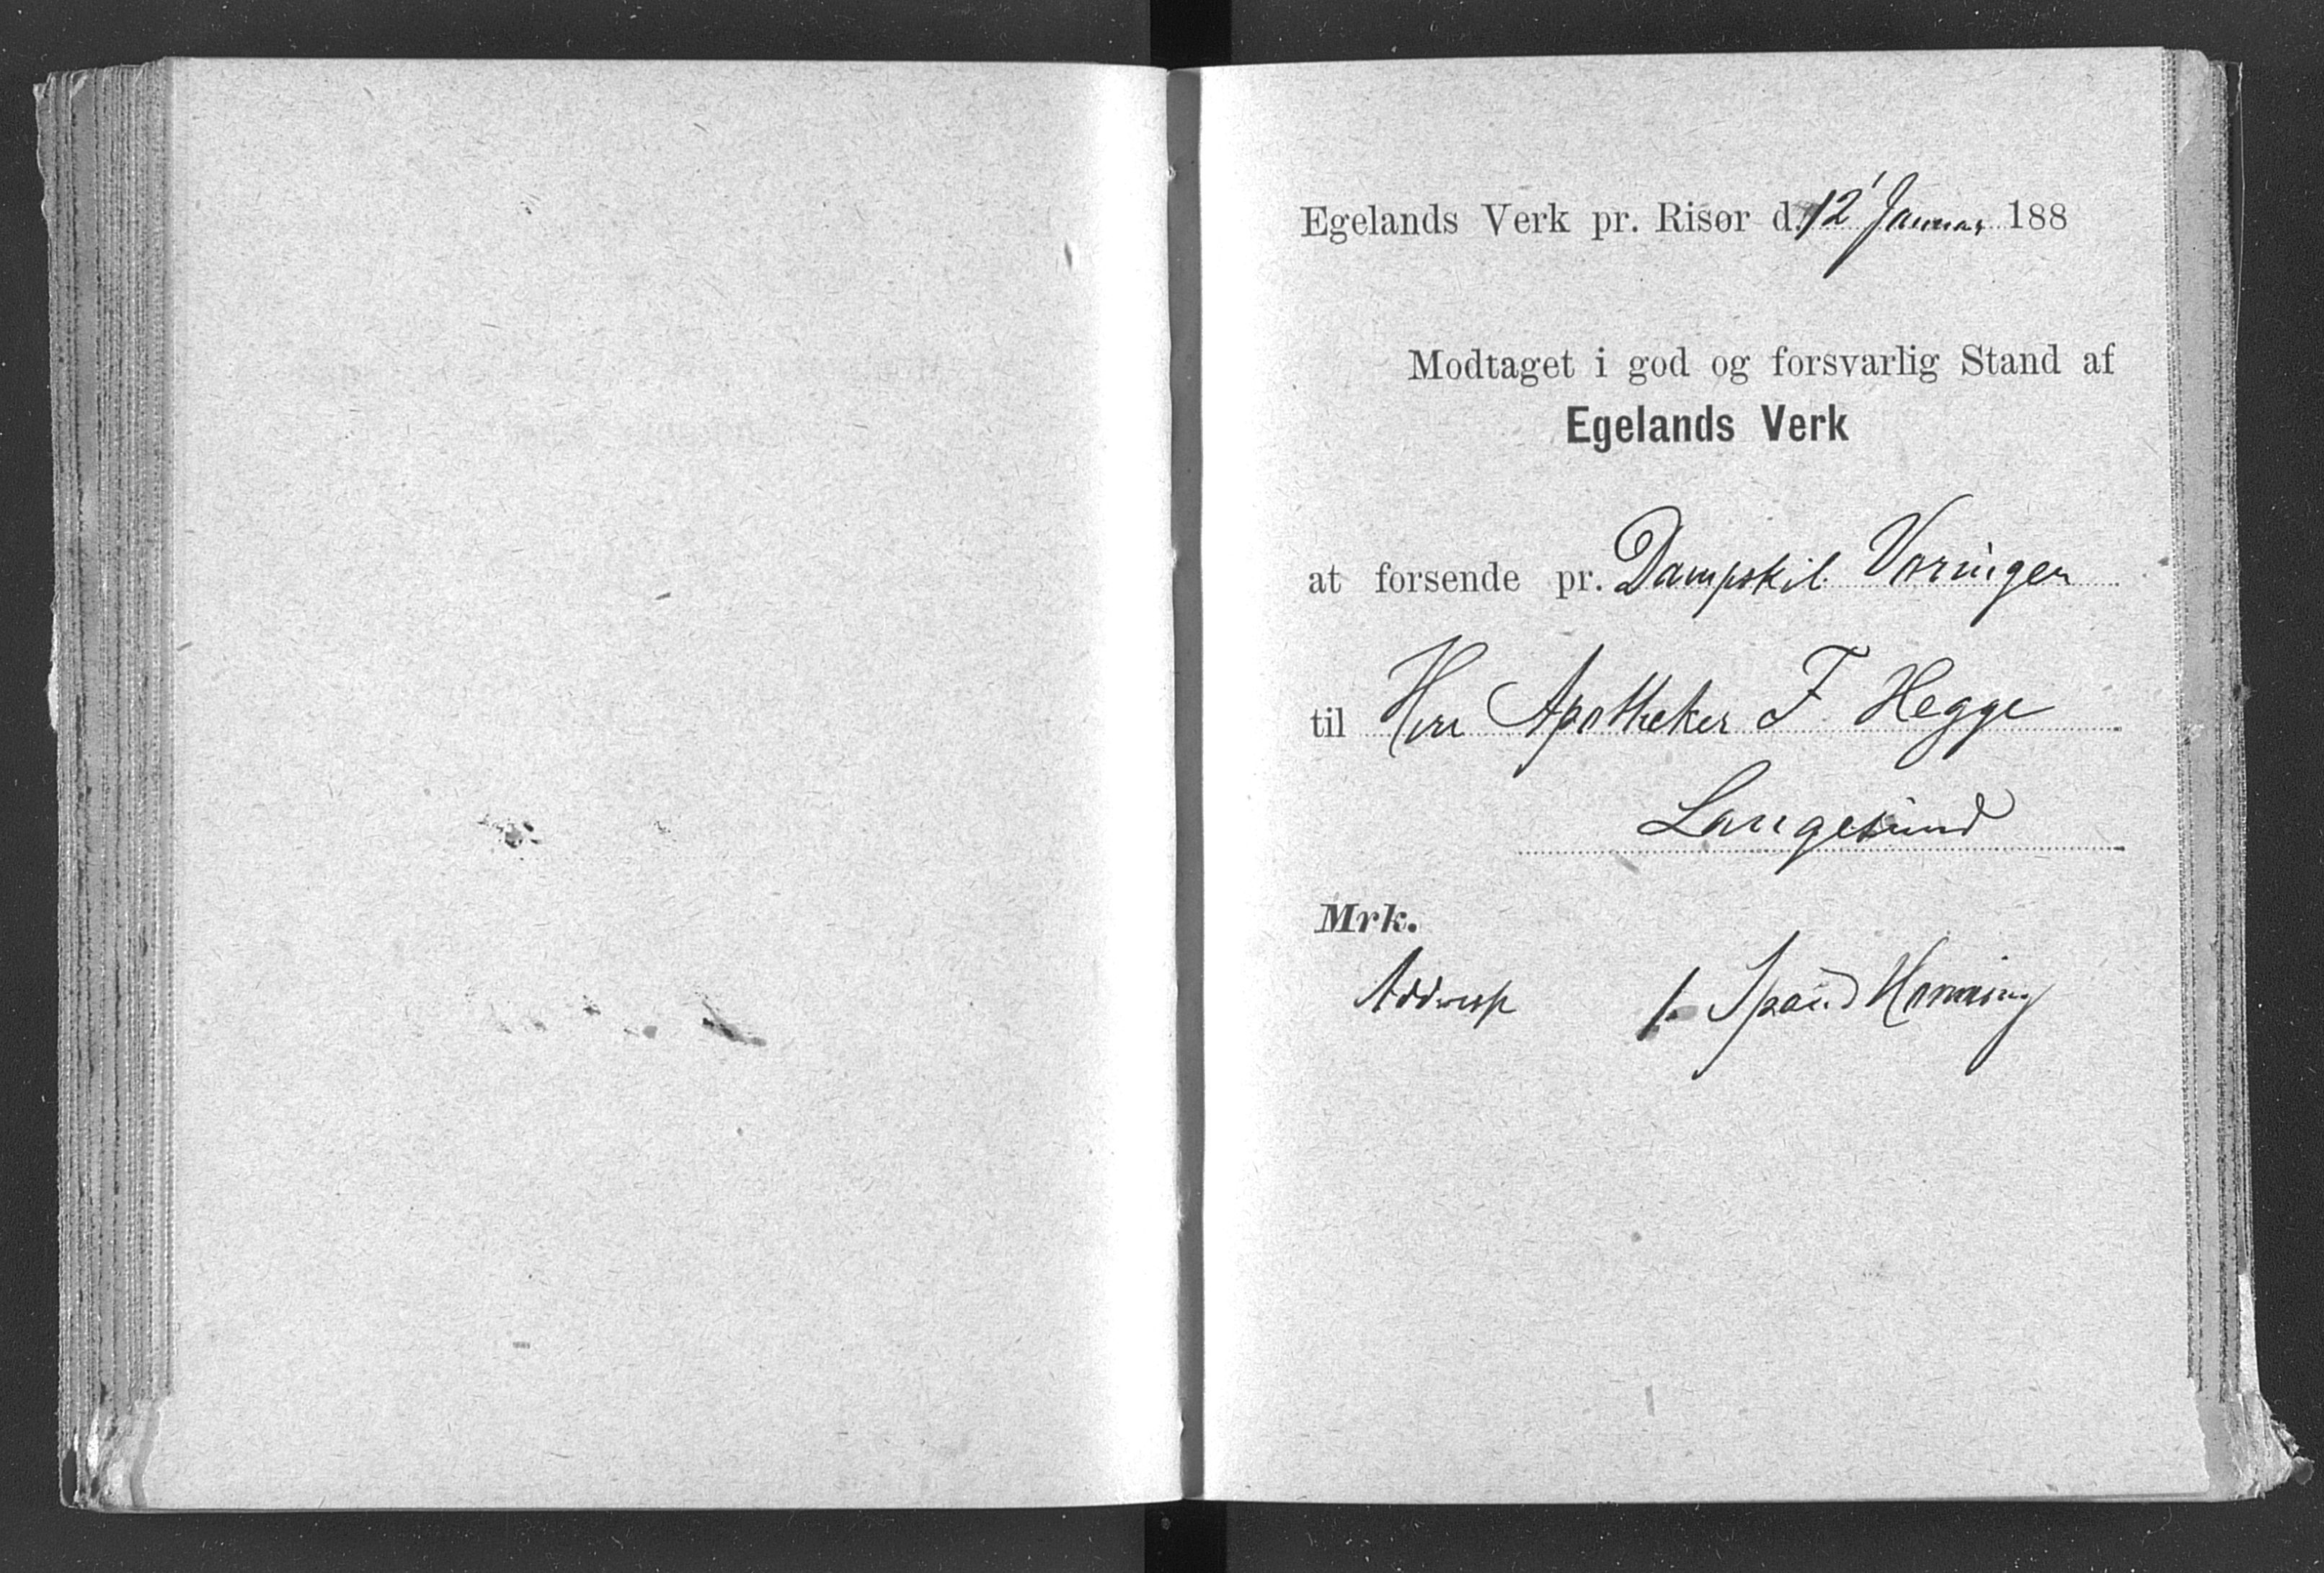 Egelands Verk pr. Risør d. 12' Januar 188
Modtaget i god og forsvarlig Stand af
Egelands Verk
at forsende pr. Dampskib Vøringen
til Herr Apotheker F. Hegge
Langesund
Mrk.
Addresse 1. Spand Honning